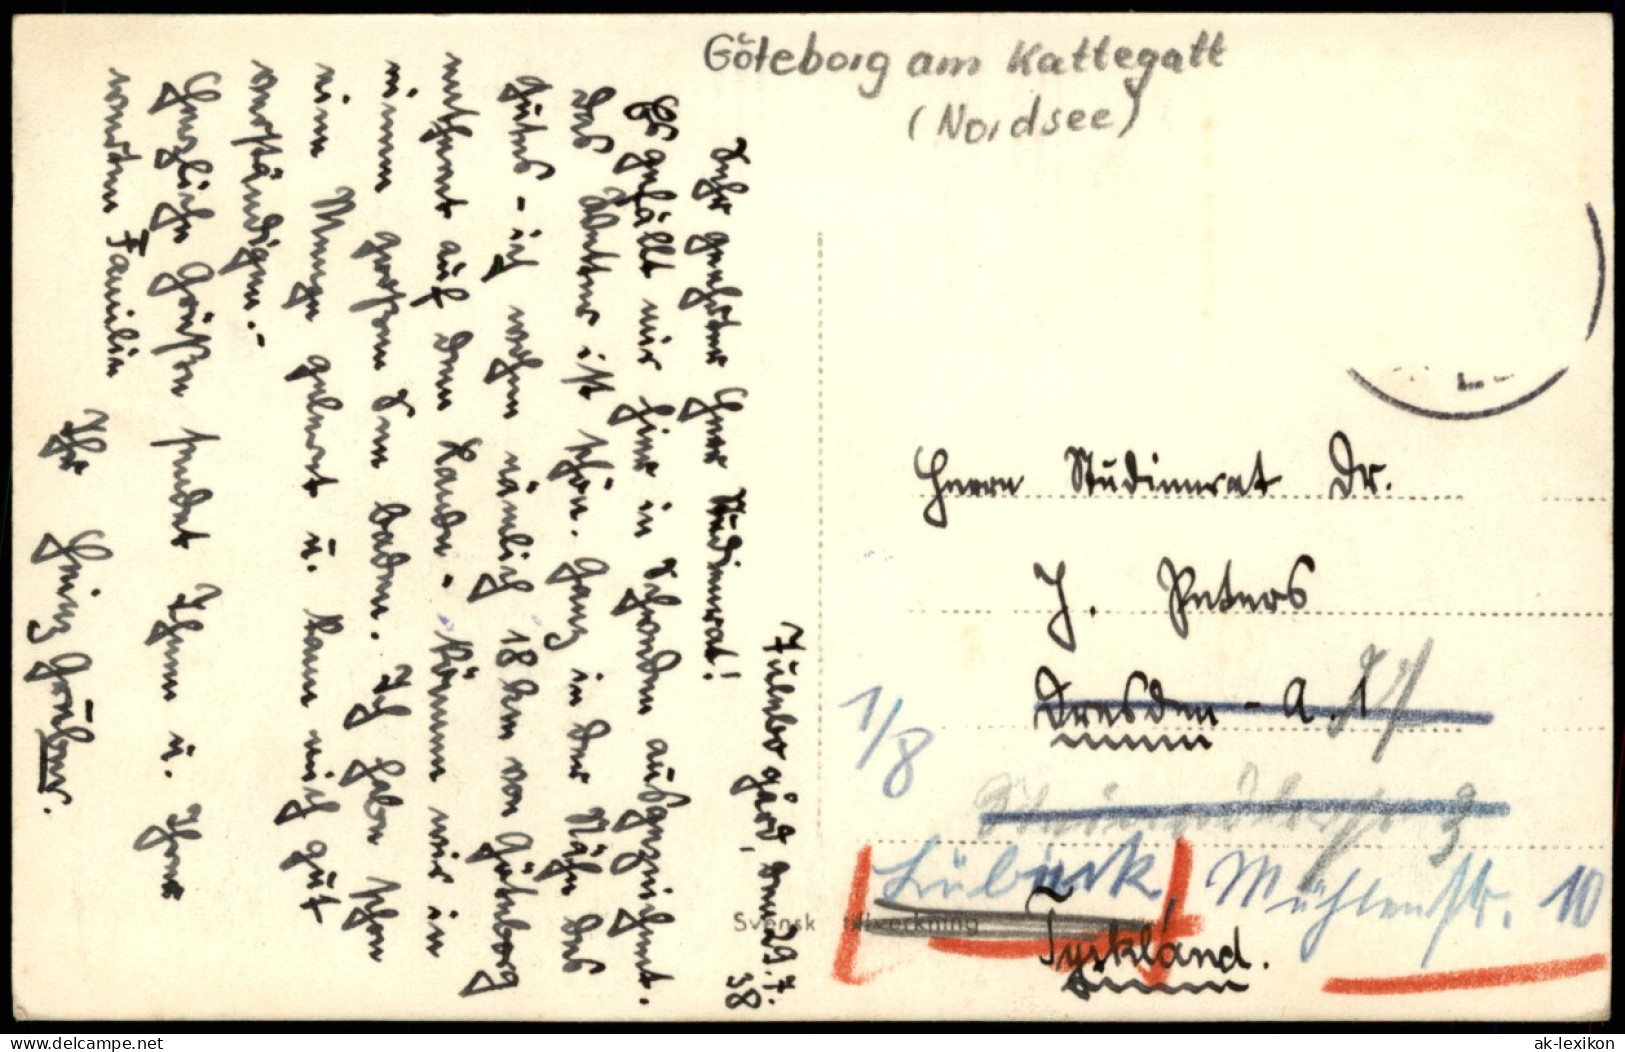 Göteborg am Kattegatt
(Nordsee)
Julebo gård, den 29.7.
38
Sehr geehrter Herr Studienrat!
Es gefällt mir hier in Schonden ausgezeichnet.
Das Wetter ist schön. Ganz in der Nähe des
Gutes - ich wohne nämlich 18 km von Göteborg
entfernt auf dem Lande. können wir in
einem großen See baden. Ich habe schon
eine Menge gelernt u. kann mich gut
verständigen.-
Herzliche Grüße sendet Ihnen u. Ihrer
werten Familie
Ihr Heinz
Herrn Studienrat Dr.
J. Peters
Dresden - A. 1
1/8
Lübeck, Mühlenstr. 10
Svensk tillverkning
Tyskland.
www.delcampe.net
ak-lexikon